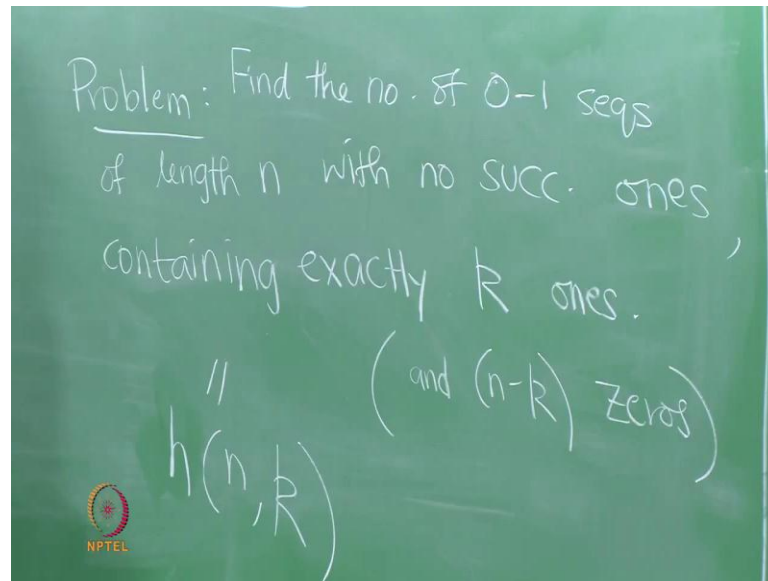 Problem: Find the no. of 0-1 seqs
of length n with no succ. ones,
containing exactly k ones.
(and (n-k) zeros)
"
h(n,k)
NPTEL